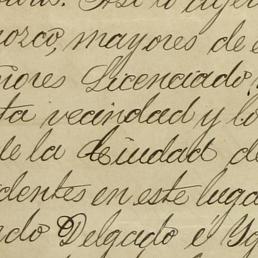 orozco, mayores de e
ñores Licenciado,
ta vecindad y lo
de la Ciudad de
identes en este luga
ndo Delgado é Yg